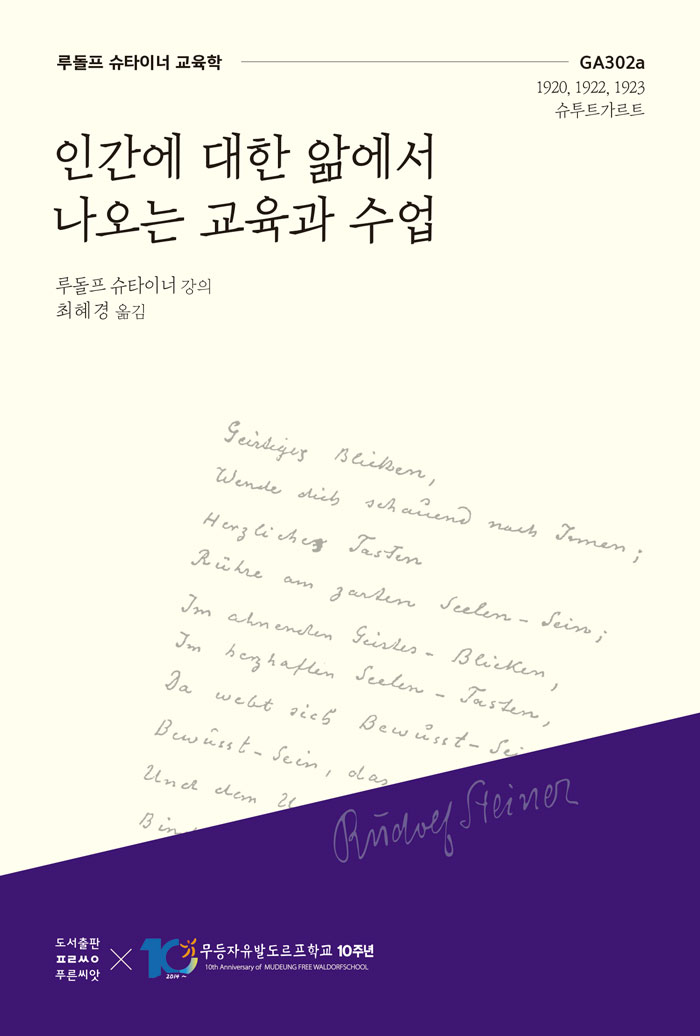 루돌프 슈타이너 교육학
GA302a
1920, 1922, 1923
슈투트가르트
인간에 대한 앎에서
나오는 교육과 수업
루돌프 슈타이너 강의
최혜경 옮김
Geistiges Blicken,
Wende dich schauend nach Innen;
Herzliches Tasten
Rühre am zarten Seelen-Sein;
Im ahnenden Geistes-Blicken,
Im herzhaften Seelen-Tasten,
Da webt sich Bewusst-Sei
Bewusst-Sein, das
Und dem U
Bin
Rudolf Steiner
도서출판
ㅍㄹㅆㅇ
푸른씨앗
×
10
2014~
무등자유발도르프학교 10주년
10th Anniversary of MUDEUNG FREE WALDORFSCHOOL